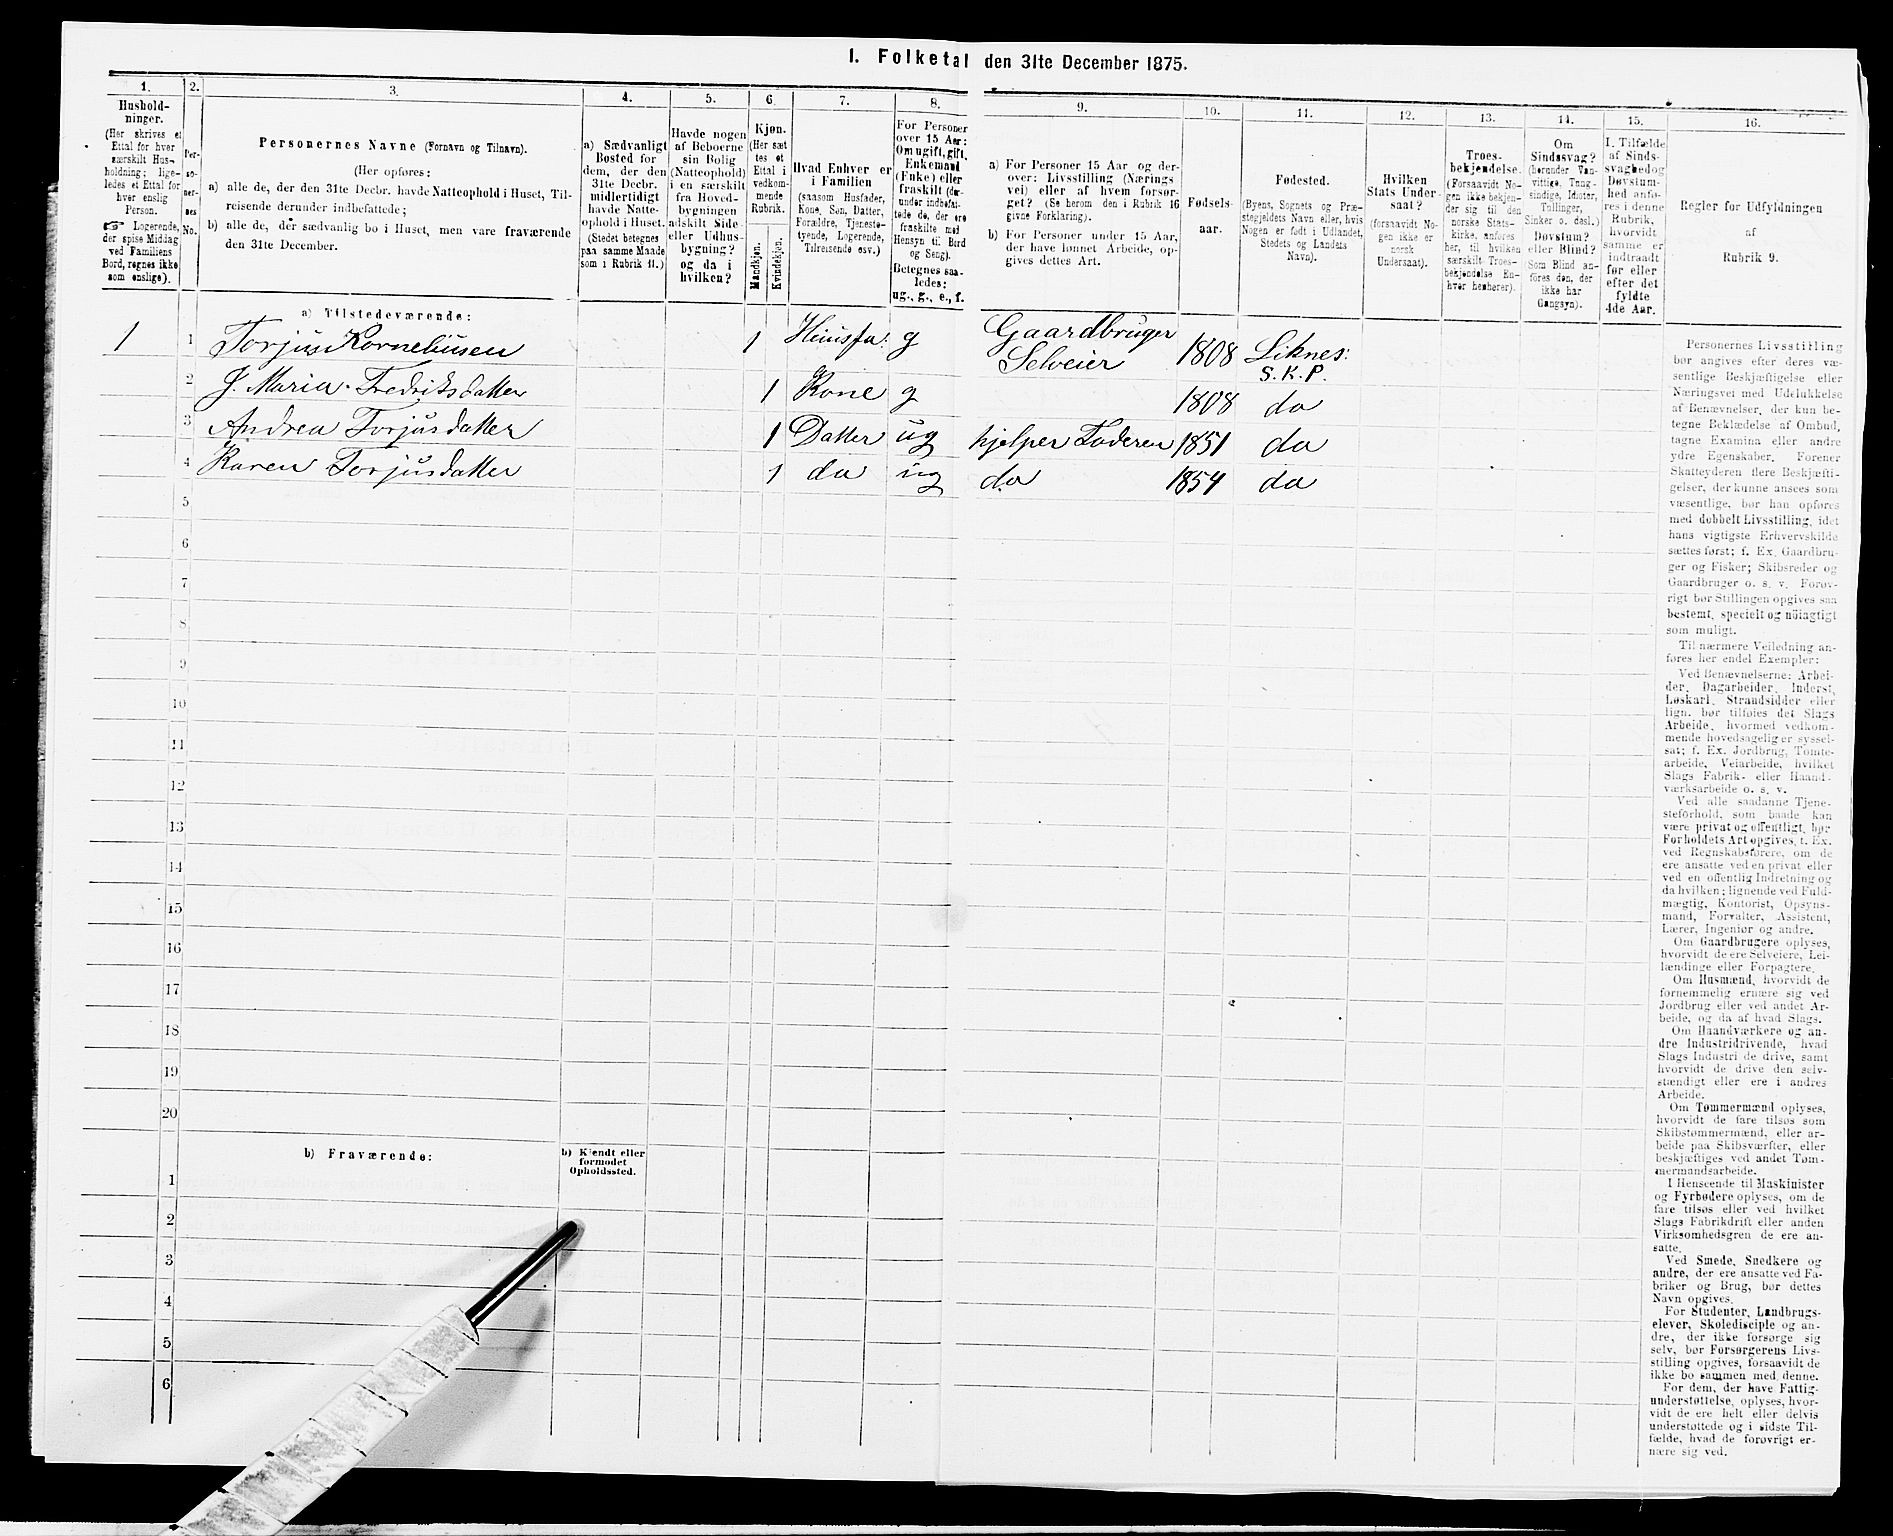 I. Folketal den 31te December 1875.
1.
Hushold-
ninger.
(Her skrives et
Ettal for hver
særskilt Hus-
holdning; lige-
ledes et Ettal for
hver enslig
Person.
☞ Logerende,
der spise Middag
ved Familiens
Bord, regnes ikke
som enslige).
2.
Per-
so-
ner-
nes
No.
3.
Personernes Navne (Fornavn og Tilnavn).
(Her opføres:
a) alle de, der den 31te Decbr. havde Natteophold i Huset, Til-
reisende derunder indbefattede;
b) alle de, der sædvanlig bo i Huset, men vare fraværende
den 31te December.
4.
a) Sædvanligt
Bosted for
dem, der den
31te Decbr.
midlertidigt
havde Natte-
ophold i Huset.
(Stedet betegnes
paa samme Maade
som i Rubrik 11.)
5.
Havde nogen
af Beboerne
sin Bolig
(Natteophold)
i en særskilt
fra Hoved-
bygningen
adskilt Side-
eller Udhus-
bygning?
og da i
hvilken?
6.
Kjøn.
(Her sæt
tes et
Ettal i
vedkom-
mende
Rubrik.
Mandkjøn.
Kvindekjøn.
7.
Hvad Enhver er
i Familien
(saasom Husfader,
Kone, Søn, Datter,
Forældre, Tjeneste-
tyende, Logerende,
Tilreisende osv.)
8.
For Personer
over 15 Aar:
Om ugift, gift,
Enkemand
(Enke) eller
fraskilt (der-
under indbefat-
tede de, der ere
fraskilte med
Hensyn til Bord
og Seng).
Betegnes saa-
ledes:
ug., g., e., f.
9.
a) For Personer 15 Aar og der-
over: Livsstilling (Nærings
vei) eller af hvem forsør-
get? (Se herom den i Rubrik 16
givne Forklaring).
b) For Personer under 15 Aar,
der have lønnet Arbeide, op-
gives dettes Art.
10.
Fødsels-
aar.
11.
Fødested.
(Byens, Sognets og Præ-
stegjeldets Navn eller, hvis
Nogen er født i Udlandet,
Stedets og Landets
Navn).
12.
Hvilken
Stats Under-
saat?
(forsaavidt No-
gen ikke er
norsk
Undersaat).
13.
Troes-
bekjendelse.
(Forsaavidt No-
gen ikke bekjen-
der sig til den
norske Stats-
kirke, anføres
her, til hvilken
særskilt Troes-
bekjendelse En-
hver henhører).
14.
Om
Sindssvag?
(herunder Van-
vittige, Tung-
sindige, Idioter,
Tullinger,
Sinker o. desl.)
Døvstum?
eller Blind?
(Som Blind an-
føres den, der
ikke har
Gangsyn).
15.
I. Tilfælde
af Sinds-
svaghed og
Døvstum-
hed anfø-
res i denne
Rubrik,
hvorvidt
samme er
indtraadt
før eller
efter det
fyldte
4de Aar.
16.
Regler for Udfyldningen
af
Rubrik 9.
a) Tilstedeværende:
1 1 Torjus Kornelius̲en 1 Huusfa: g Gaardbruger Selveier 1808 Liknes: S.K.P.
2 J. Maria Fredriksdatter 1 Kone g 1808 do
3 Andrea Torjusdatter 1 Datter ug hjelper Faderen 1851 do
4 Karen Torjusdatter 1 do ug do 1854 do
5
6
7
8
9
10
11
12
13
14
15
16
17
18
19
20
b) Fraværende:
b) Kjendt eller
formodet
Opholdssted.
1
2
3
4
5
6
Personernes Livsstilling
bør angives efter deres væ-
sentlige Beskjæftigelse eller
Næringsvei med Udelukkelse
af Benævnelser, der kun be-
tegne Beklædelse af Ombud,
tagne Examina eller andre
ydre Egenskaber. Forener
Skatteyderen flere Beskjæfti-
gelser, der kunne ansees som
væsentlige, bør han opføres
med dobbelt Livsstilling, idet
hans vigtigste Erhvervskilde
sættes først; f. Ex. Gaardbru-
ger og Fisker; Skibsreder og
Gaardbruger o. s. v. Forøv-
rigt bør Stillingen opgives saa
bestemt, specielt og nøiagtigt
som muligt.
Til nærmere Veiledning an-
føres her endel Exempler:
Ved Benævnelserne: Arbei-
der, Dagarbeider, Inderst,
Løskarl, Strandsidder eller
lign. bør tilføies det Slags
Arbeide, hvormed vedkom-
mende hovedsagelig er syssel-
sat; f. Ex. Jordbrug, Tomte-
arbeide, Veiarbeide, hvilket
Slags Fabrik- eller Haand-
værksarbeide o. s. v.
Ved alle saadanne Tjene-
steforhold, som baade kan
være privat og offentligt, bør
Forholdets Art opgives, f. Ex.
ved Regnskabsførere, om de
ere ansatte ved en privat eller
ved en offentlig Indretning og
da hvilken; lignende ved Fuld-
mægtig, Kontorist, Opsyns-
mand, Forvalter, Assistent,
Lærer, Ingeniør og andre.
Om Gaardbrugere oplyses,
hvorvidt de ere Selveiere, Lei-
lændinge eller Forpagtere.
Om Husmænd, hvorvidt de
fornemmelig ernære sig ved
Jordbrug eller ved andet Ar-
beide, og da af hvad Slags.
Om Haandværkere og an-
dre Industridrivende, hvad
Slags Industri de drive, samt
hvorvidt de drive den selv-
stændigt eller ere i andres
Arbeide.
Om Tømmermænd oplyses,
hvorvidt de fare tilsøs som
Skibstømmermænd, eller ar-
beide paa Skibsværfter, eller
beskjæftiges ved andet Tøm-
mermandsarbeide.
I Henseende til Maskinister
og Fyrbødere oplyses, om de
fare tilsøs eller ved hvilket
Slags Fabrikdrift eller anden
Virksomhedsgren de ere an-
satte.
Ved Smede, Snedkere og
andre, der ere ansatte ved Fa-
briker og Brug, bør dettes
Navn opgives.
For Studenter, Landbrugs-
elever, Skoledisciple og an-
dre, der ikke forsørge sig
selv, bør Forsørgerens Livs-
stilling opgives, forsaavidt de
ikke bo sammen med denne.
For dem, der have Fattig-
understøttelse, oplyses, hvor-
vidt de ere helt eller delvis
understøttede og i sidste Til-
fælde, hvad de forøvrigt er-
nære sig ved.